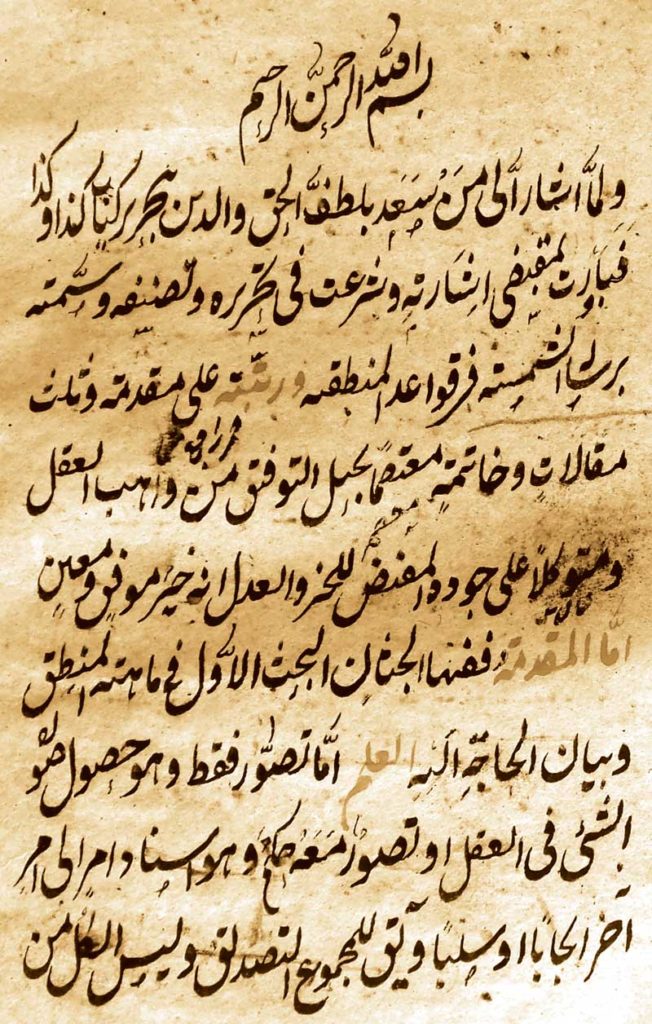 بسم الله الرحمن الرحيم
ولمّا اشار اليّ من سَعِد بلطف الحق والدين بتحرير كتاب كذا وكذا
فبادرت لمقتضى اشارته وشرعت فى تحريره وتصنيفه وسمّيته
برسالة الشمسية فى قواعد المنطقيه ورتّبته على مقدمة وثلث
مقالاتٍ وخاتمةٍ معتصمًا بحبل التوفيق من واهب العقل
ومتوكلاً على جوده المفيض للخير والعدل انه خير موفق ومعين
امّا المقدمة ففيها بحثان البحث الاوّل فى ماهية المنطق
وبيان الحاجة اليه العلم امّا تصوّر فقط وهو حصول صورة
الشئ فى العقل او تصور معه حكم وهو اسناد امر الى امر
آخر ايجابًا او سلبًا ويق للمجموع التصديق وليس الكل من